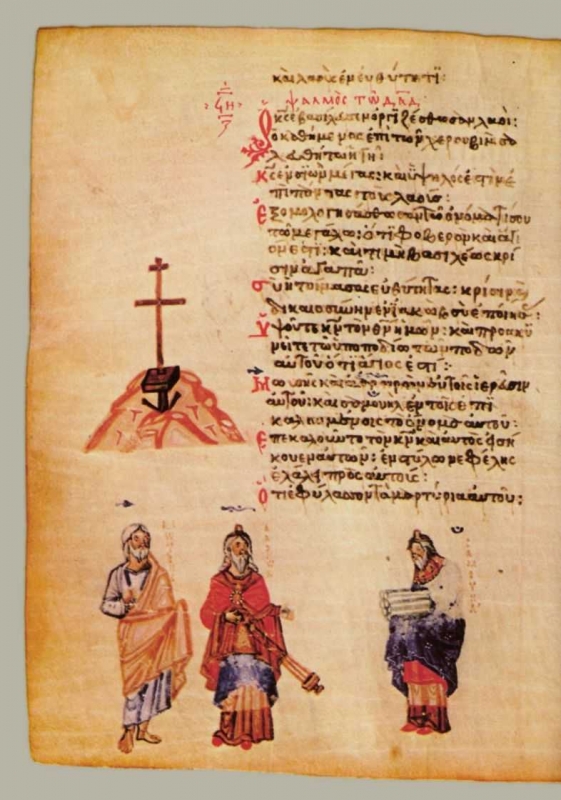 καὶ λαοὺς ἐν εὐθύτητι:
ϟη ψαλμὸς τῶ δαδ
Ὁ κς ἐβασίλευσεν ὀργιζέσθωσαν λαοί:
ὁ καθήμενος ἐπὶ τῶν χερουβὶμ σα
λευθήτω ἡ γῆ:
κς ἐν σιὼν μέγας: καὶ ὑψηλός ἐστιν ἐ
πὶ πάντας τοὺς λαούς:
Ἐξομολογησάσθωσαν τῶ ὀνόματί σου
τῶ μεγάλω: ὅτι φοβερὸν καὶ ἅγι
όν ἐστι: καὶ τιμὴ βασιλέως κρί
σιν ἀγαπᾶ:
σὺ ἡτοίμασας εὐθύτητας: κρίσιν
δικαιοσύνην ἐν ἰακὼβ σὺ ἐποίησ:
Ὑψοῦτε κν τὸν θν ἡμῶν: καὶ προσκυ
νεῖτε τῶ ὑποποδίω τῶν ποδῶν
αὐτοῦ ὅτι ἅγιός ἐστι:
Μωυσῆς καὶ ἀαρὼν ἐν τοῖς ἱερεῦσιν
αὐτοῦ: καὶ σαμουὴλ ἐν τοῖς ἐπι
καλουμένοις τὸ ὄνομα αὐτοῦ:
Ἐπεκαλοῦντο τὸν κν καὶ αὐτὸς εἰσή
κουεν αὐτῶν: ἐν στύλω νεφέλης
ἐλάλει πρὸς αὐτούς:
Ὅτι ἐφύλασσον τὰ μαρτύρια αὐτοῦ: